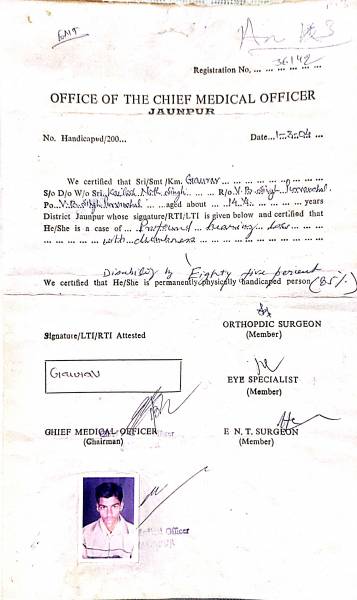 ENT
36142
Registration No, ... ... ... ... ... ...
OFFICE OF THE CHIEF MEDICAL OFFICER
JAUNPUR
No. Handicapud/200...
Date...1-3-04...
We certified that Sri/Smt/Km. Gaurav ... ... ... ... ...
S/o D/o W/o Sri. Kailash Nath Singh ... R/o. V. Po.
Po... ... aged about ... 14 ... years
District Jaunpur whose signature/RTI/LTI is given below and certified
He/She is a case of ... Profound ... hearing ... loss ... ... ...
... ... ... ... ... with ... dumbness ... ... ... ... ... ...
Disability by Eighty five percent
We certified that He/She is permanently/physically handicaped person (85%)
ORTHOPDIC SURGEON
(Member)
Signature/LTI/RTI Attested
Gaurav
EYE SPECIALIST
(Member)
GHIEF MEDICAL OFFICER
(Chairman)
E N. T. SURGEON
(Member)
Officer